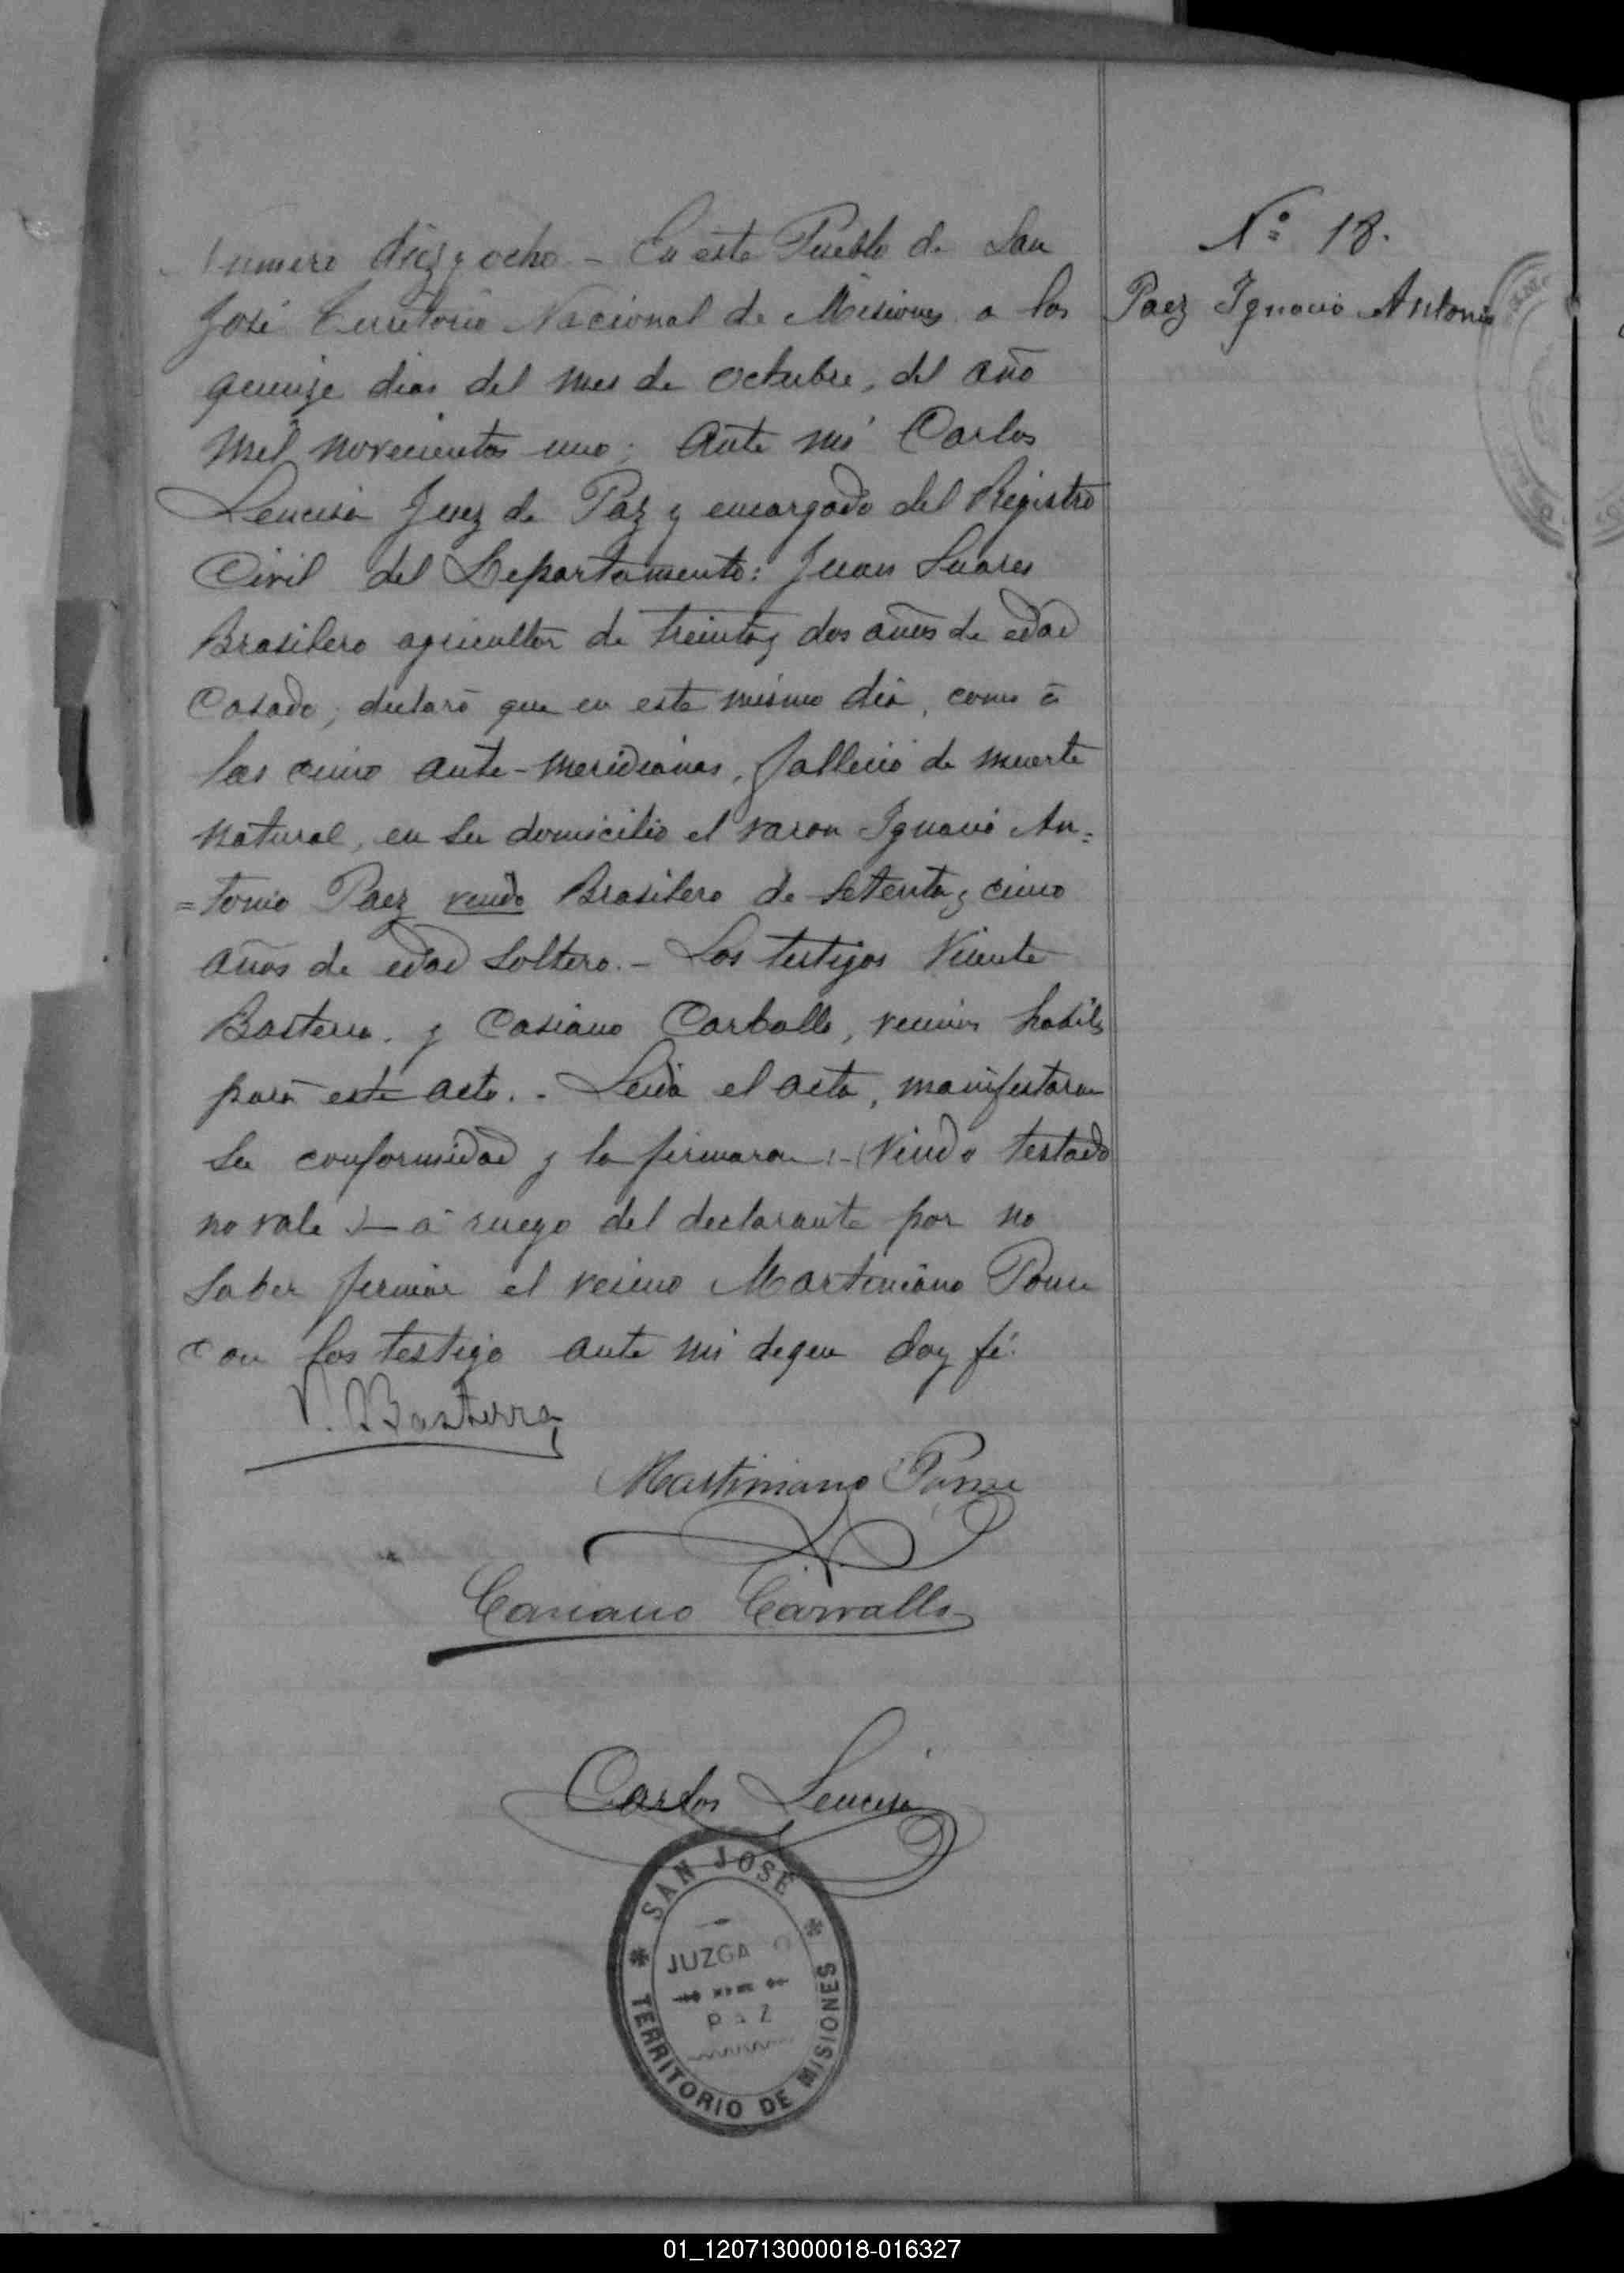 Nº 18.
Paez Ignacio Antonio
Numero diez y ocho - En este Pueblo de San
José Territorio Nacional de Misiones a los
quinze dias del mes de Octubre, del año
mil novecientos uno; Ante mi Carlos
Lencisa Juez de Paz y encargado del Registro
Civil del Departamento: Juan Suares
Brasilero agricultor de treinta y dos años de edad
Casado, declaró que en este mismo dia, como á
las cinco ante-meridianas, fallecio de muerte
natural, en su domicilio el varon Ignacio An=
=tonio Paez viudo Brasilero de setenta y cinco
años de edad Soltero. - Los testigos Vicente
Basterra y Casiano Carballo, vecinos habiles
para este acto. - Leida el acta, manifestaron
su conformidad y la firmaron :- (Viudo testado
no vale) - á ruego del declarante por no
saber firmar el vecino Martiniano Ponce
con los testigo ante mi deque doy fé.
V. Basterra
Martiniano Ponce
Casiano Carvallo
Carlos Lencisa
SAN JOSÉ
JUZGA O
PAZ
TERRITORIO DE MISIONES
01_120713000018-016327